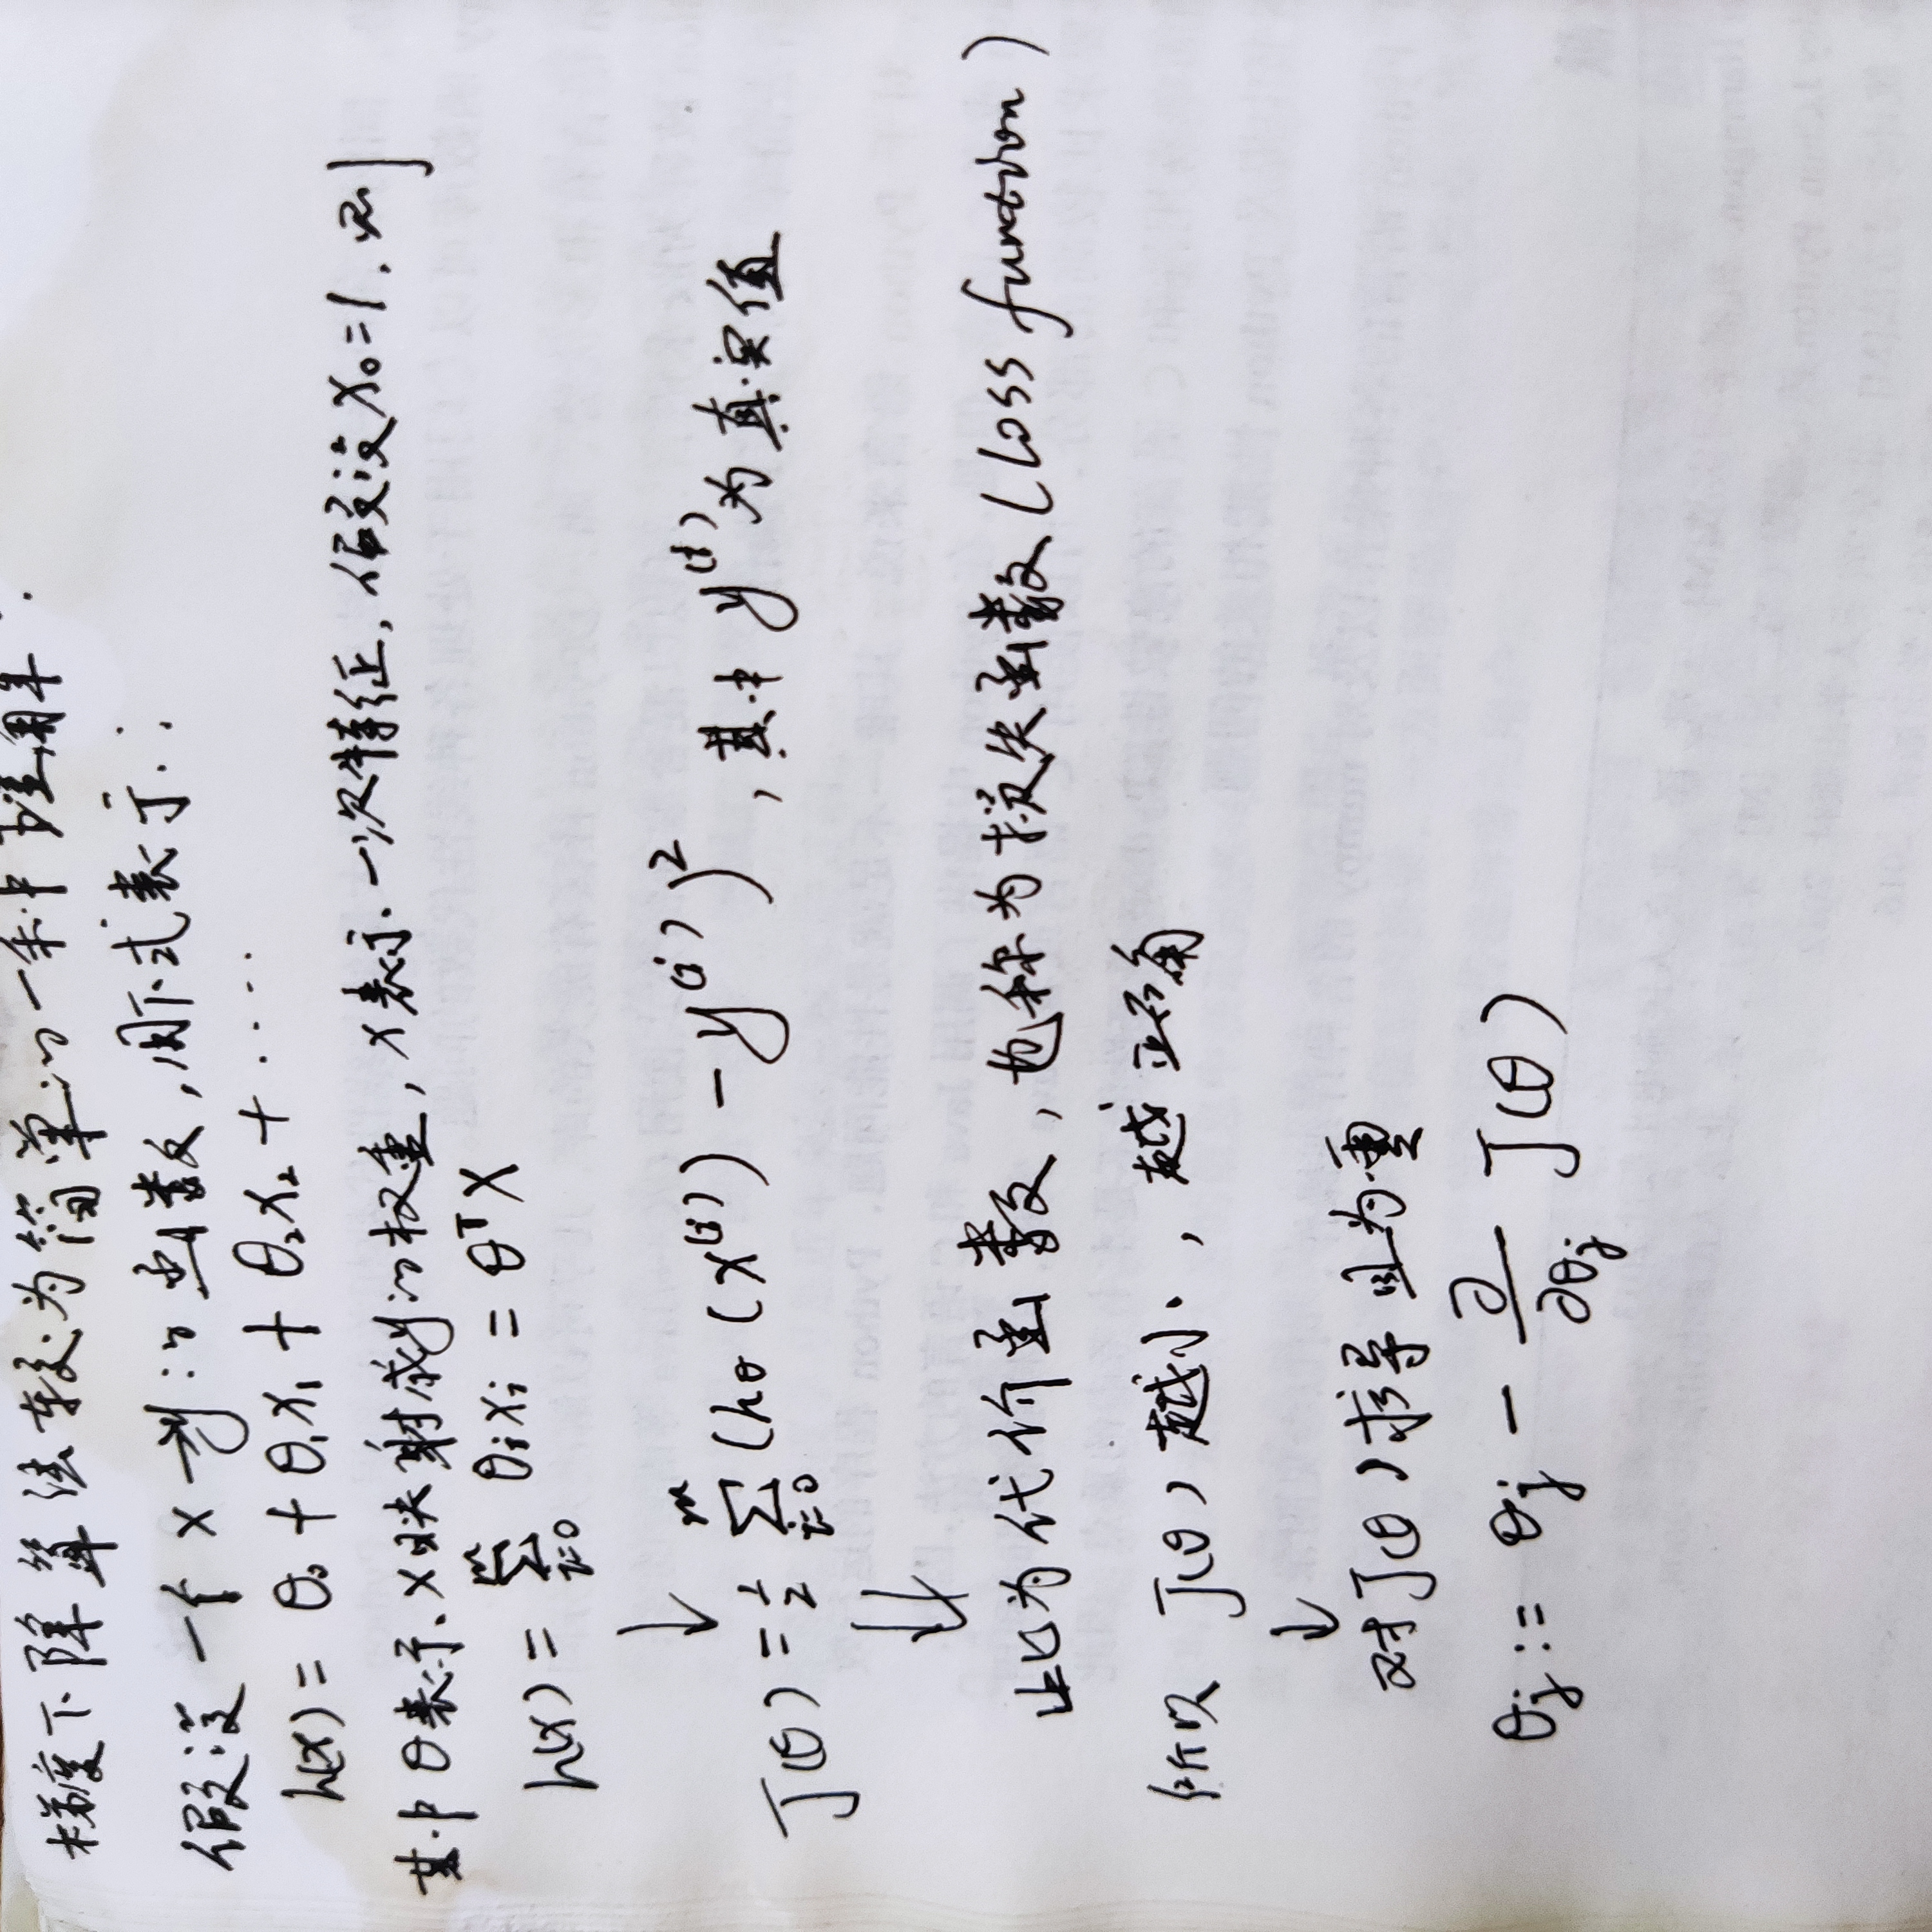 梯度下降算法较为简单的一种理解:
假设一个 x→y 的函数,用下式表示:
h(x) = θ₀ + θ₁x₁ + θ₂x₂ + ....
其中θ表示x映射成y的权重,x表示一次特征,假设x₀=1,则
h(x) = ∑_{i=0}^{m} θᵢxᵢ = θᵀX
↓
J(θ) = 1/2 ∑_{i=0}^{m} (h_θ(x⁽ⁱ⁾) - y⁽ⁱ⁾)²,其中 y⁽ⁱ⁾为真实值
⇓
此为代价函数,也称为损失函数(loss function)
所以 J(θ)越小,越正确
↓
对J(θ)求导且为零
θⱼ := θⱼ - ∂/∂θⱼ J(θ)